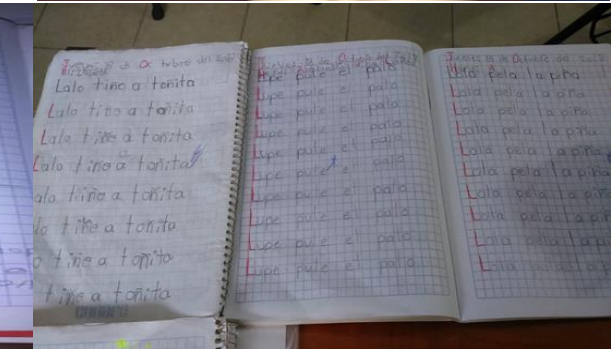 Jueves 18 de Octubre del 2018
Lalo tiñe a toñita
Lalo tiñe a toñita
Lalo tiñe a toñita
Lalo tiñe a toñita
alo tiñe a toñita
lo tiñe a toñita
o tiñe a toñita
tiñe a toñita
Jueves 18 de Octubre del 2018
Lupe pule el palo
Lupe pule el palo
Lupe pule el palo
Lupe pule el palo
Lupe pule el palo
Lupe pule el palo
Lupe pule el palo
Lupe pule el palo
Lupe pule el palo
Jueves 18 de Octubre del 2018
Lola pela la piña
Lola pela la piña
Lola pela la piña
Lola pela la piña
Lola pela la piña
Lola pela la piña
Lola pela la pi
Lola pela la p
Lola pela la p